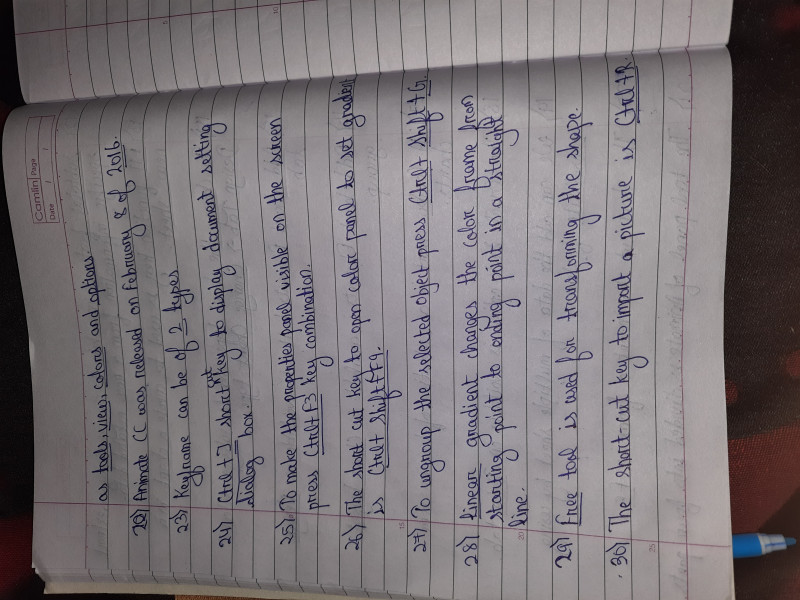 Camlin Page
Date / /
as tools, view, colors and options.
22) Animate CC was released on February 8 of 2016.
23) Keyframe can be of 2 types
24) Ctrl+J short cut key to display document setting
Dialog box.
25) To make the properties panel visible on the screen
press Ctrl+F3 key combination.
26) The short cut key to open color panel to set gradient
is Ctrl+ Shift+F9.
27) To ungroup the selected object press Ctrl+ Shift+G.
28) Linear gradient changes the color frame from
starting point to ending point in a straight
line.
29) Free tool is used for transforming the shape.
30) The short-cut key to import a picture is Ctrl+R.